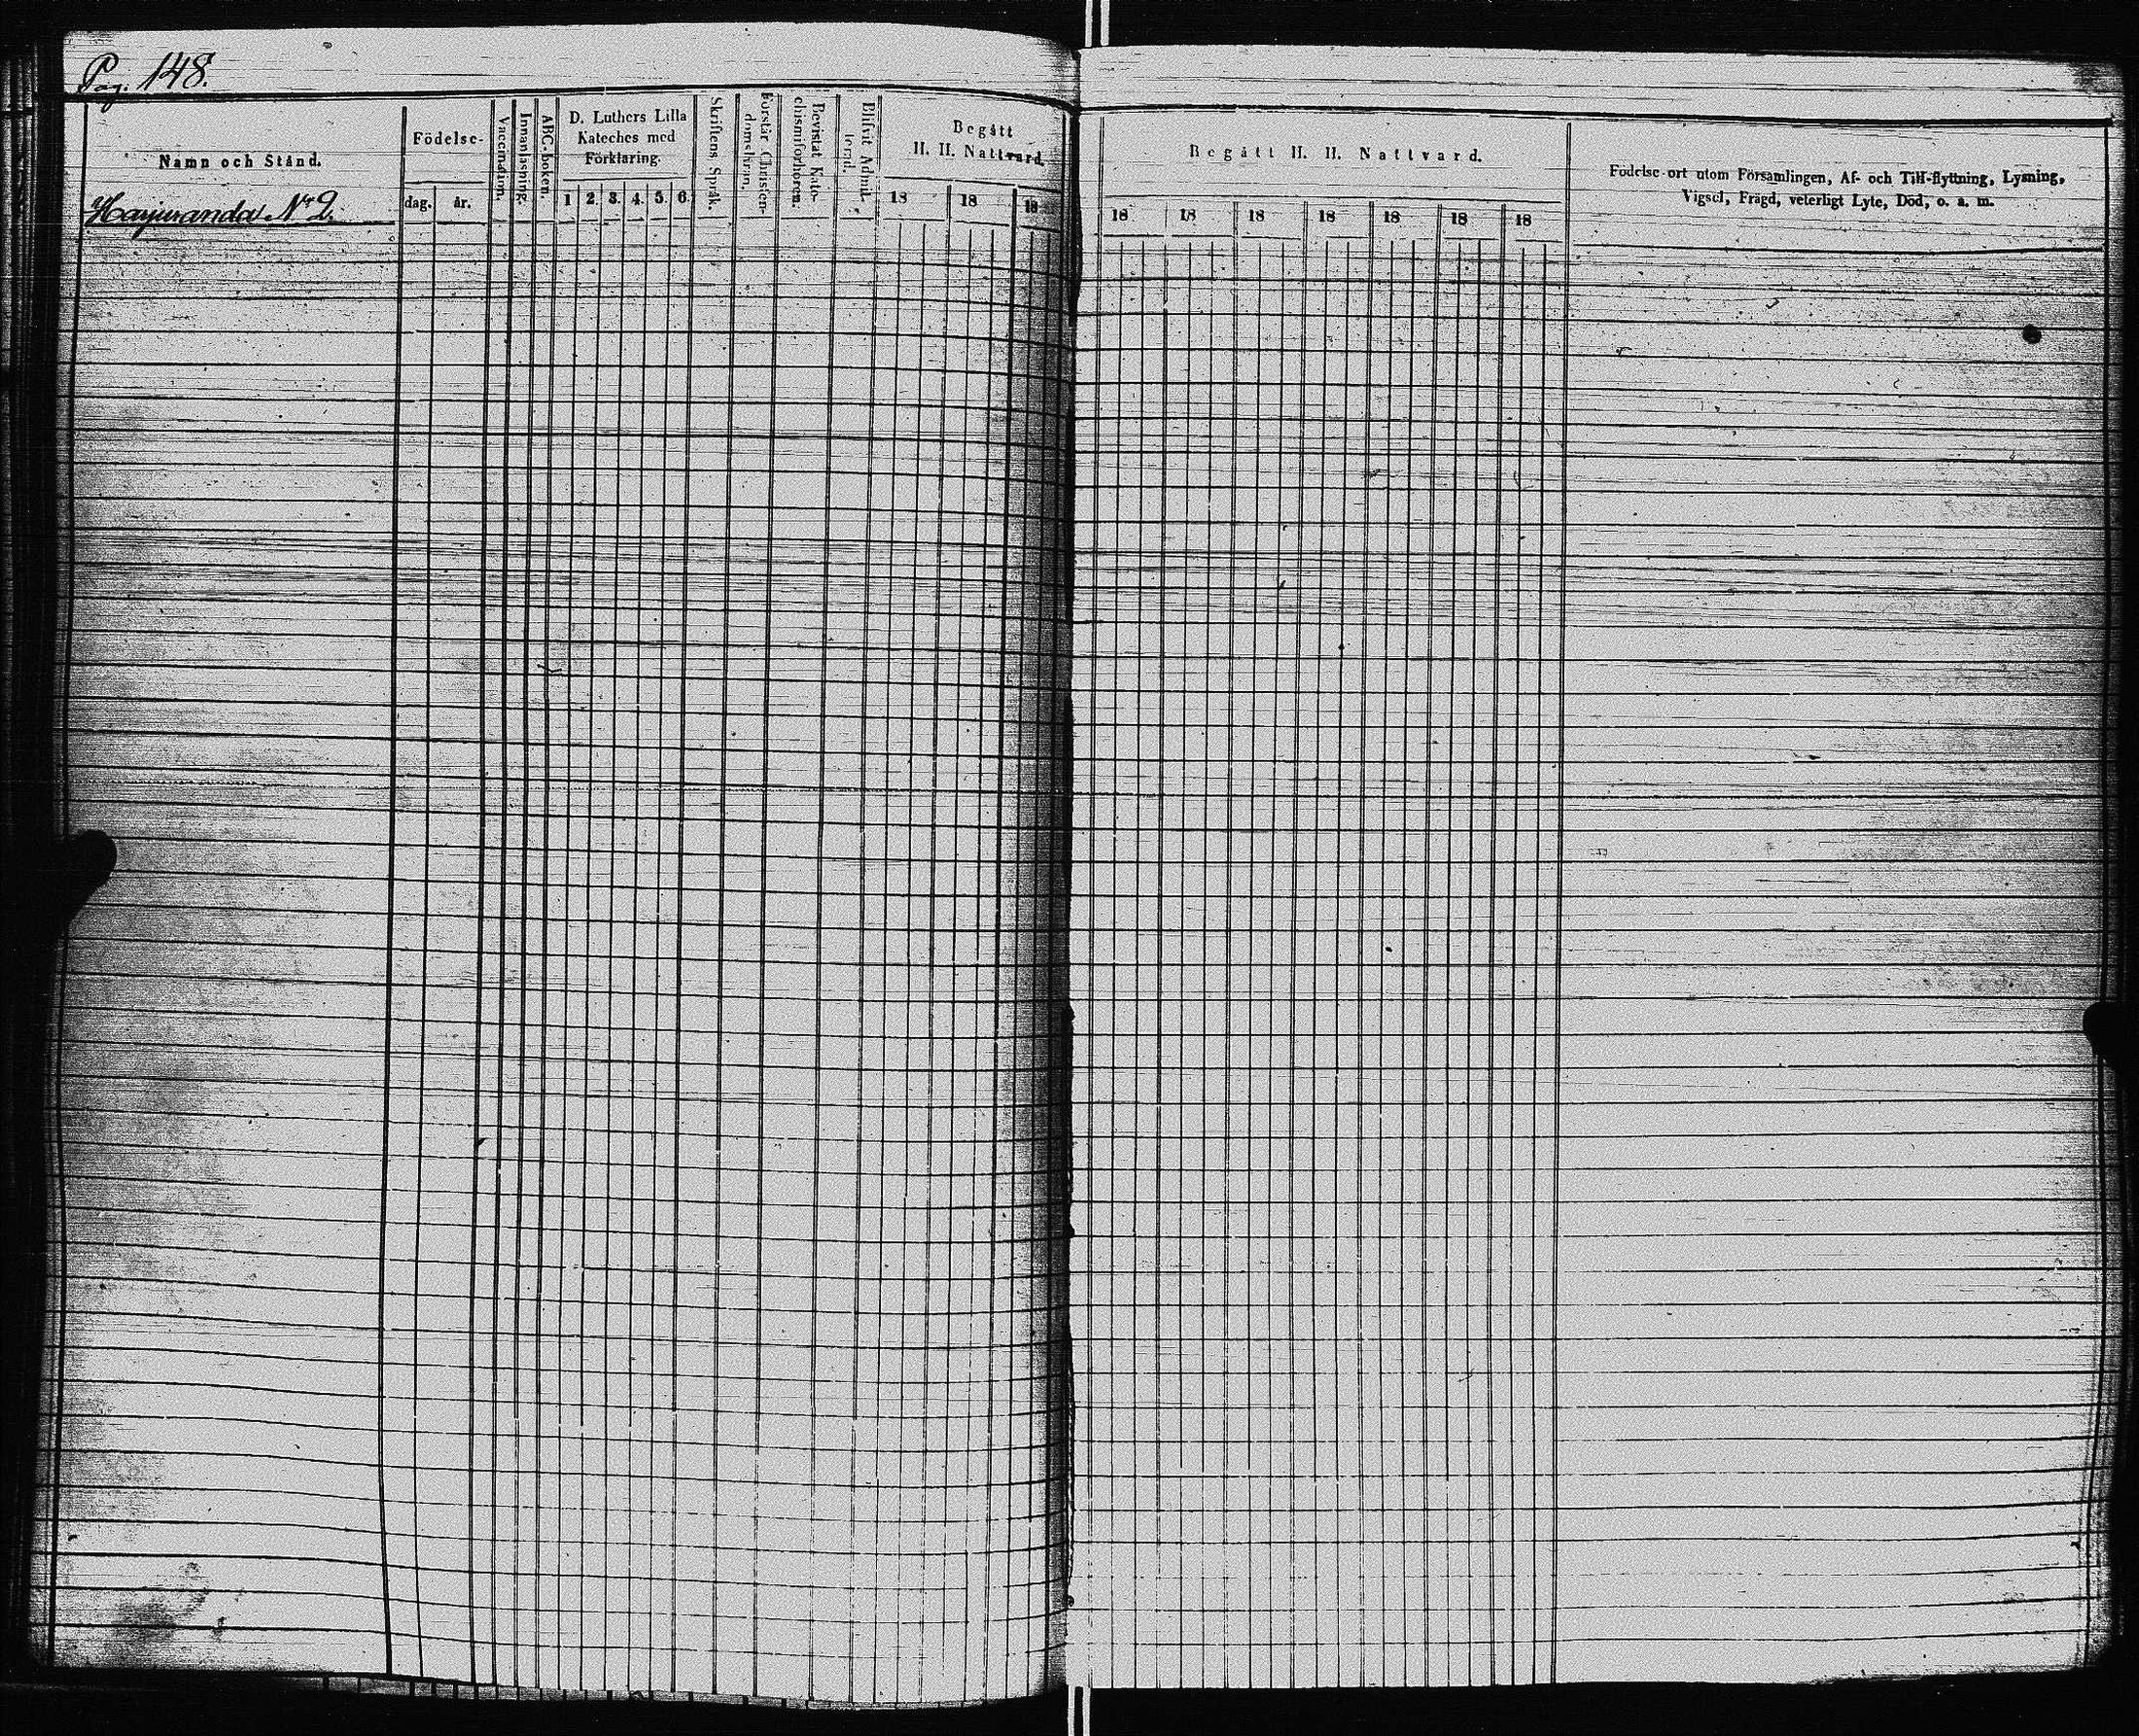 Pag. 148.
Namn och Stånd.
Harjuranda N:o 2.
Födelse-
dag. år.
Vaccination.
Innanläsning.
ABC-boken.
D. Luthers Lilla
Kateches med
Förklaring.
1 2. 3. 4. 5. 6.
Skriftens Språk.
Förstår Christen-
domsläran.
Bevistat Kate-
chismiförhören.
Blifvit Admit-
terad.
Begått
H. H. Nattvard.
18 18 18
Begått H. H. Nattvard.
18 18 18 18 18 18 18
Födelse-ort utom Församlingen, Af- och Till-flyttning, Lysning,
Vigsel, Frägd, veterligt Lyte, Död, o. a. m.